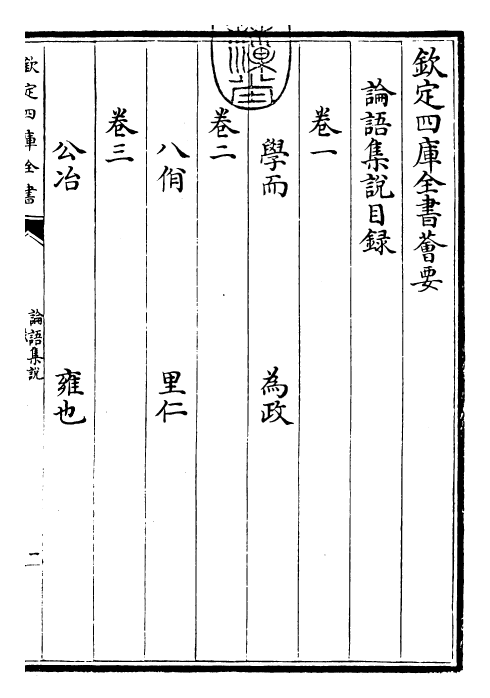 欽定四庫全書薈要
論語集說目録
卷一
學而 為政
卷二
八佾 里仁
卷三
公冶 雍也
欽定四庫全書
論語集說
二